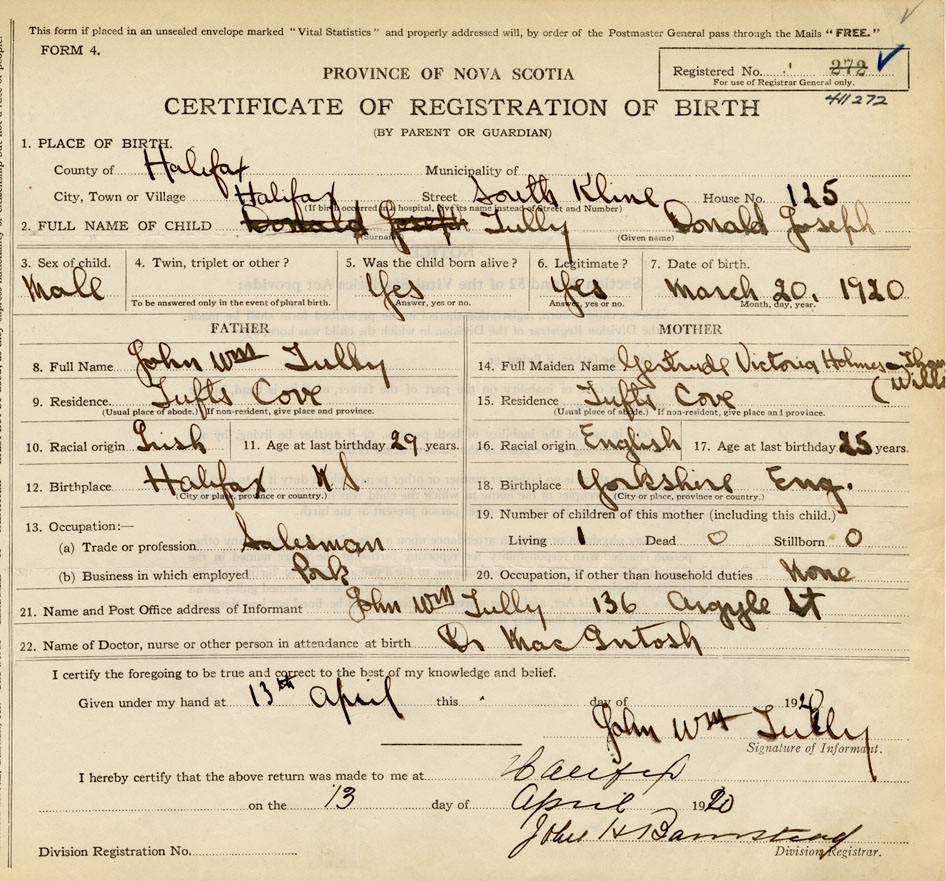 This form if placed in an unsealed envelope marked "Vital Statistics" and properly addressed will, by order of the Postmaster General pass through the Mails "FREE."
FORM 4.
PROVINCE OF NOVA SCOTIA
Registered No. 272
For use of Registrar General only.
411272
CERTIFICATE OF REGISTRATION OF BIRTH
(BY PARENT OR GUARDIAN)
1. PLACE OF BIRTH.
County of Halifax Municipality of
City, Town or Village Halifax Street South Kline House No. 125
(If birth occurred in a hospital, give its name instead of Street and Number)
2. FULL NAME OF CHILD Donald Joseph Tully Donald Joseph
(Surname) (Given name)
3. Sex of child. 4. Twin, triplet or other? 5. Was the child born alive? 6. Legitimate? 7. Date of birth.
Male Yes Yes March 20, 1920
To be answered only in the event of plural birth. Answer, yes or no. Answer, yes or no. Month, day, year.
FATHER
8. Full Name John Wm Tully
9. Residence. Tufts Cove
(Usual place of abode.) If non-resident, give place and province.
10. Racial origin Irish 11. Age at last birthday 29 years.
12. Birthplace Halifax N S
(City or place, province or country.)
13. Occupation:—
(a) Trade or profession Salesman
(b) Business in which employed Pork
MOTHER
14. Full Maiden Name Gertrude Victoria Holmes
(Will
15. Residence Tufts Cove
(Usual place of abode.) If non-resident, give place and province.
16. Racial origin English 17. Age at last birthday 25 years.
18. Birthplace Yorkshire Eng.
(City or place, province or country.)
19. Number of children of this mother (including this child.)
Living 1 Dead 0 Stillborn 0
20. Occupation, if other than household duties None
21. Name and Post Office address of Informant John Wm Tully 136 Argyle St
22. Name of Doctor, nurse or other person in attendance at birth Dr MacIntosh
I certify the foregoing to be true and correct to the best of my knowledge and belief.
Given under my hand at 13th April this day of 1920
John Wm Tully
Signature of Informant.
I hereby certify that the above return was made to me at Halifax
on the 13 day of April 1920
John H Barnstead
Division Registrar.
Division Registration No.